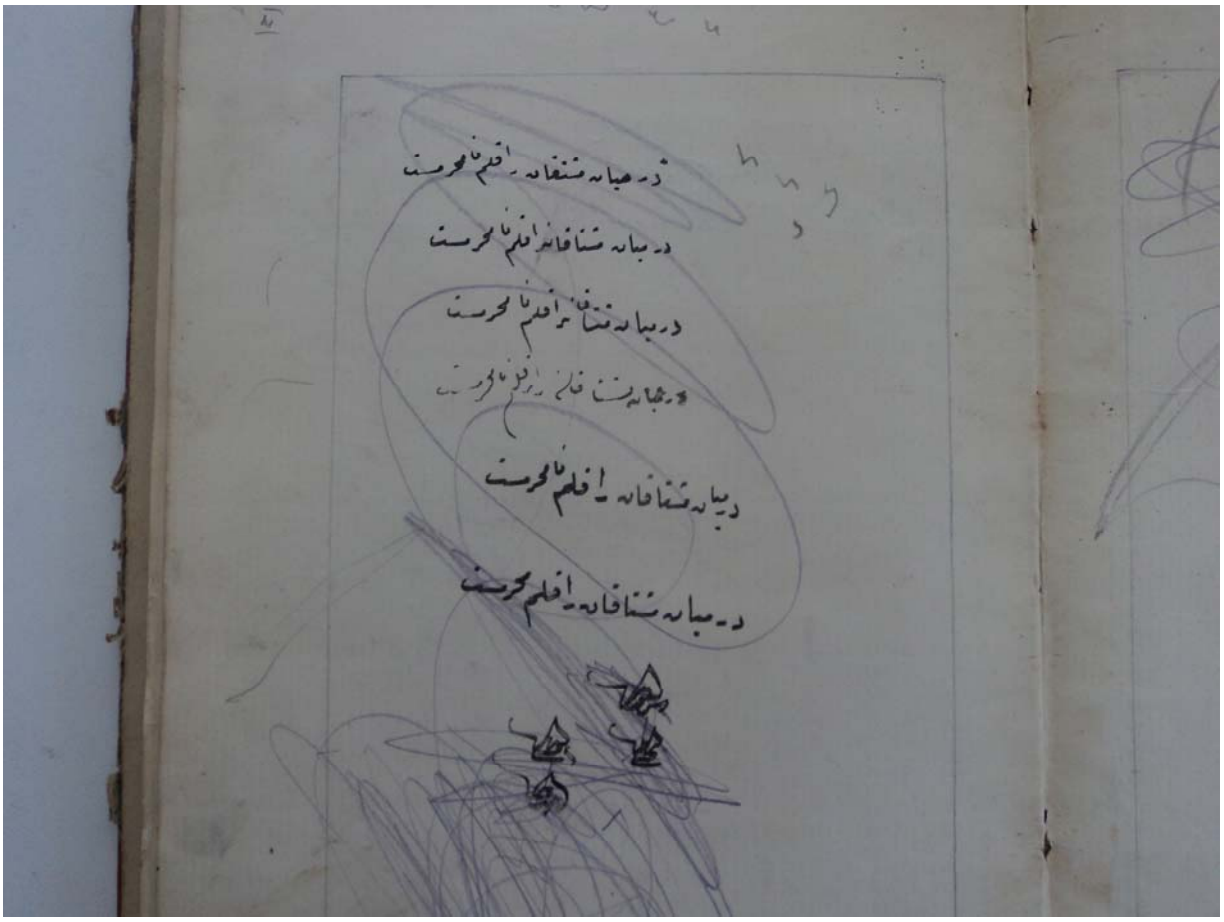 در میان مشتقان را قلم نا محرمست
در میان مشتاقان را قلم نا محرمست
در میان مشتاقان را قلم نا محرمست
در میان مشتاقان را قلم نا محرمست
در میان مشتاقان را قلم نا محرمست
در میان مشتاقان را قلم محرمست